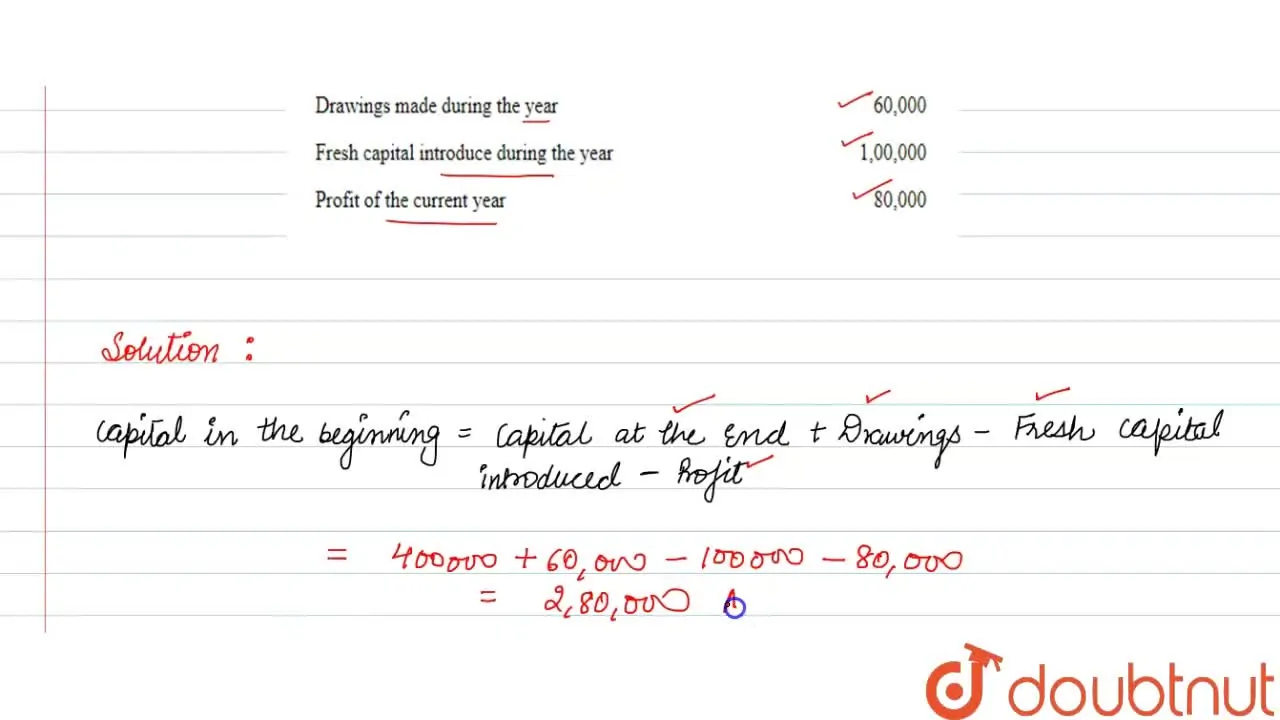 Drawings made during the year 60,000
Fresh capital introduce during the year 1,00,000
Profit of the current year 80,000
Solution :
Capital in the beginning = Capital at the End + Drawings - Fresh capital
introduced - Profit
= 400000 + 60,000 - 100000 - 80,000
= 2,80,000 A
doubtnut